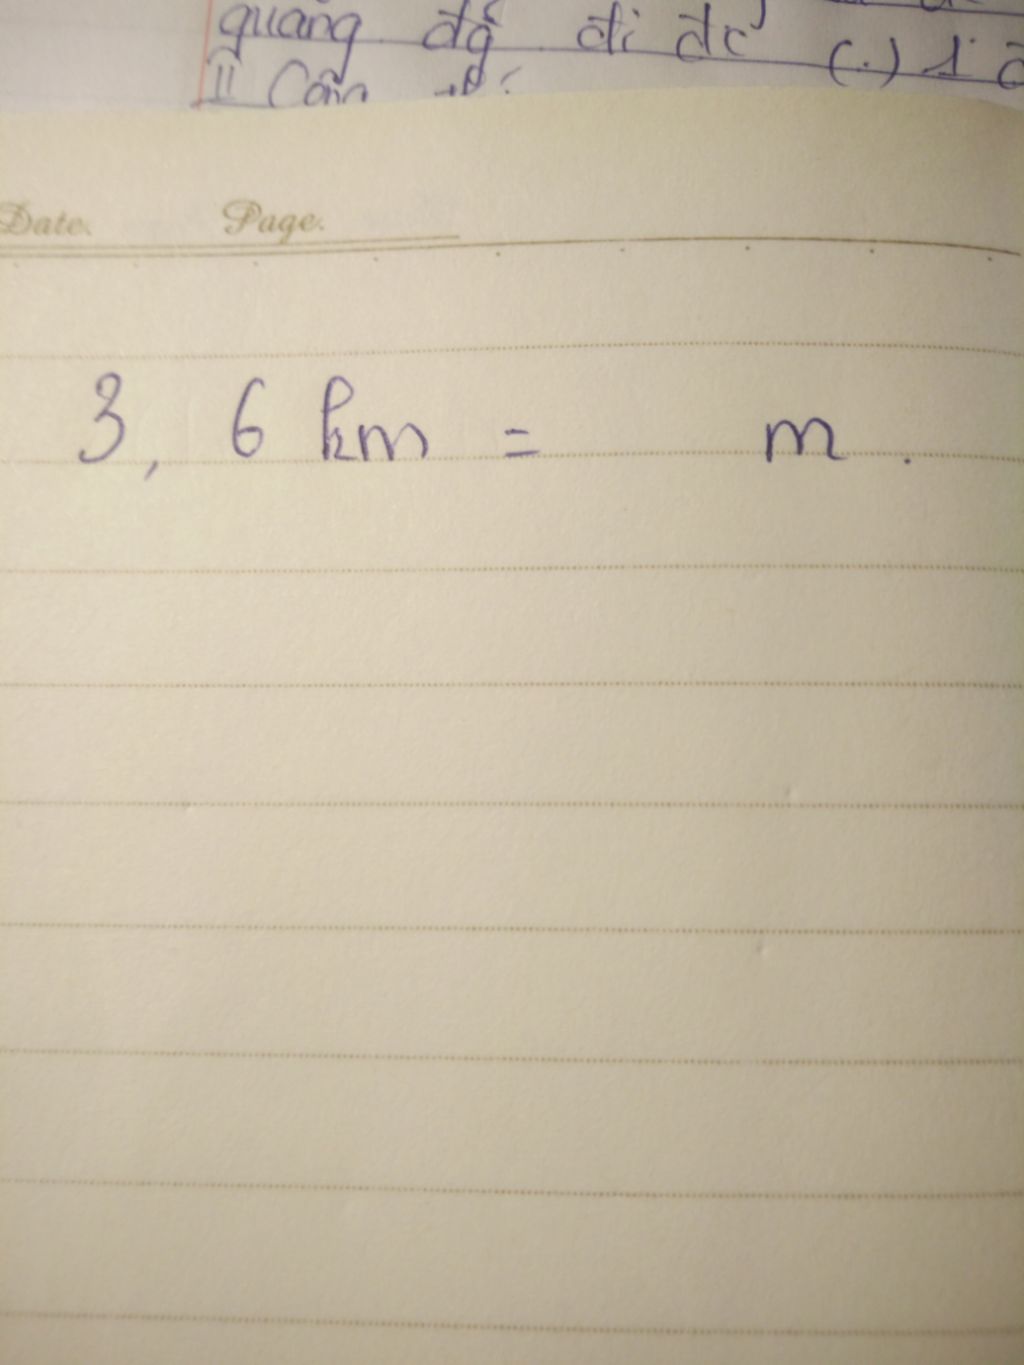 quãng đg đi đc (.) 1
II Côn
Date. Page.
3, 6 km = m.